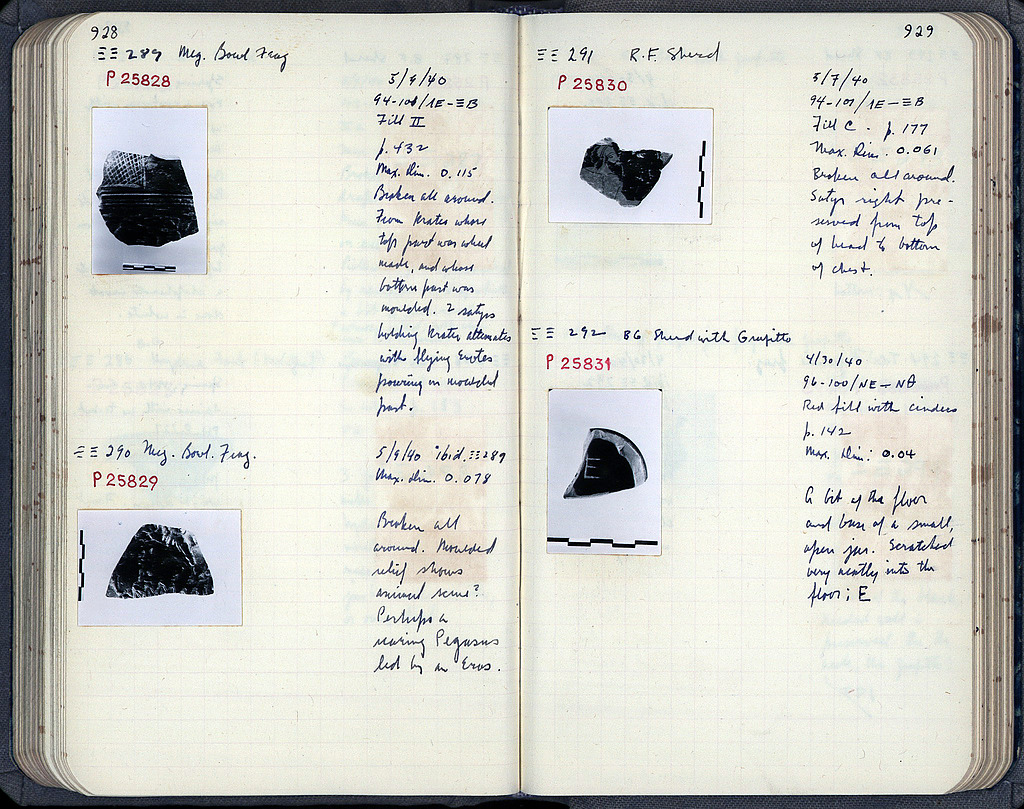 928
ΞΞ 289 Meg. Bowl Frag
P 25828
5/9/40
94-101/ΙΕ-ΞΒ
Fill II
p. 432
Max. Dim. 0.115
Broken all around.
From krater whose
top part was wheel
made, and whose
bottom part was
moulded. 2 satyrs
holding krater alternates
with flying Erotes
pouring on moulded
part.
ΞΞ 290 Meg. Bowl. Frag.
P 25829
5/9/40 ibid. ΞΞ 289
Max. dim. 0.078
Broken all
around. Moulded
relief shows
animal scene?
Perhaps a
rearing Pegasus
led by an Eros.
929
ΞΞ 291 R.F. Sherd
P 25830
5/7/40
94-101/ΙΕ-ΞΒ
Fill C. p. 177
Max. Dim. 0.061
Broken all around.
Satyr right pre-
served from top
of head to bottom
of chest.
ΞΞ 292 BG Sherd with Graffitto
P 25831
4/30/40
96-100/ΝΕ-ΝΘ
Red fill with cinders
p. 142
Max. Dim: 0.04
A bit of the floor
and base of a small,
open jar. Scratched
very neatly into the
floor; E
E